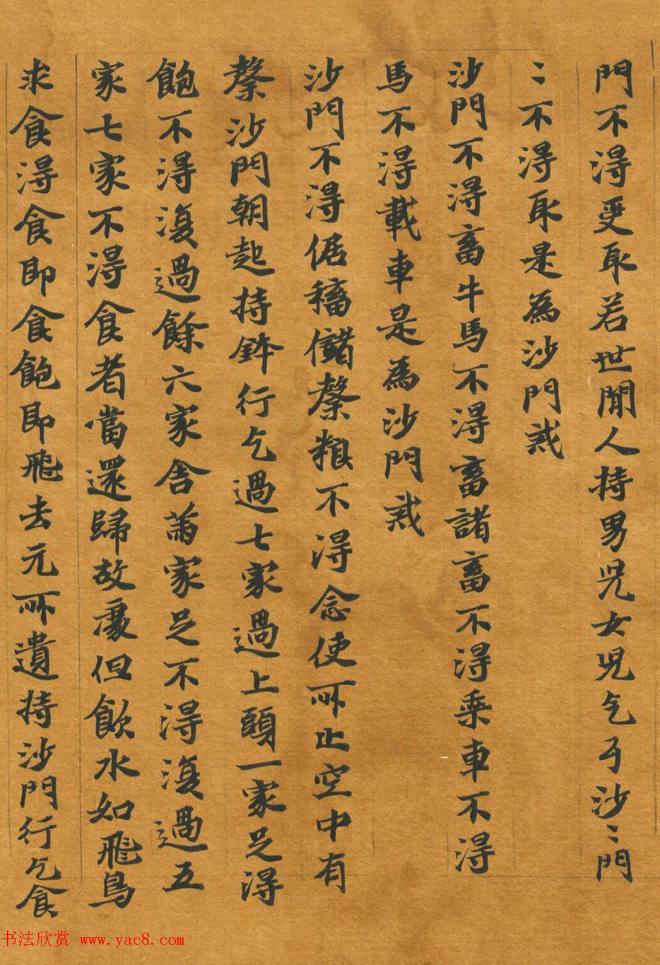 門不得更取若世間人持男児女児乞丐沙〻門
〻不得取是為沙門戒
沙門不得畜牛馬不得畜諸畜不得乗車不得
馬不得載車是為沙門戒
沙門不得倨稸儲槃粮不得念使所止空中有
槃沙門朝起持鉢行乞過七家過上頭一家足得
飽不得復過餘六家舍苐家足不得復過五
家七家不得食者當還歸故處但飲水如飛鳥
求食得食即食飽即飛去无所遺持沙門行乞食
书法欣赏 www.yac8.com